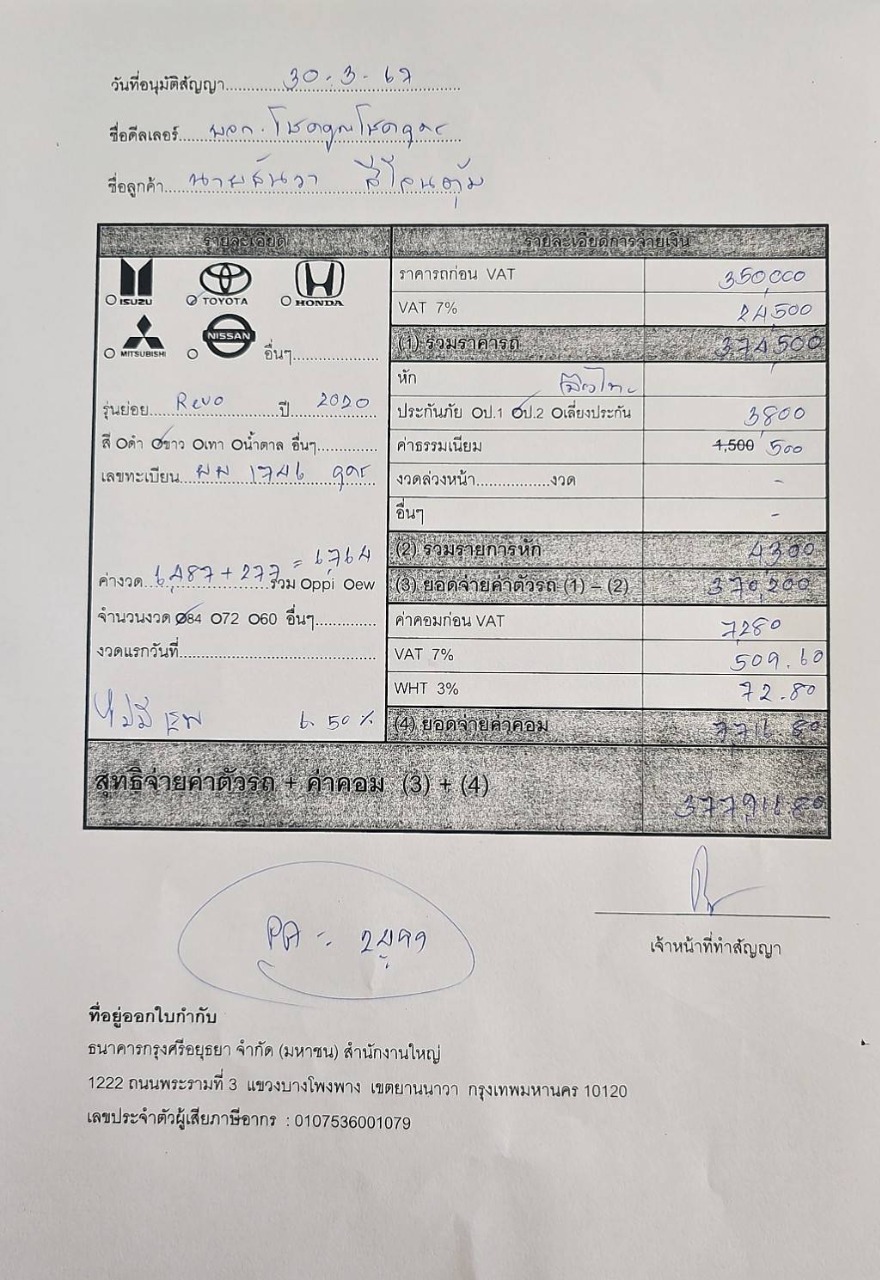 วันที่อนุมัติสัญญา 30-3-67
ชื่อดีลเลอร์ หจก. โชคคูณโชคอุดร
ชื่อลูกค้า นายธันวา
รายละเอียด
ISUZU TOYOTA HONDA
MITSUBISHI NISSAN อื่นๆ
รุ่นย่อย Revo ปี 2020
สี ดำ ขาว เทา น้ำตาล อื่นๆ
เลขทะเบียน ผผ 1746 อุดร
ค่างวด 6,487 + 277 = 6,764 รวม Oppi Oew
จำนวนงวด 84 72 60 อื่นๆ
งวดแรกวันที่
ไม่มี 6.50%
รายละเอียดการจ่ายเงิน
ราคารถก่อน VAT 350,000
VAT 7% 24,500
(1) รวมราคารถ 374,500
หัก
ประกันภัย ป.1 ป.2 เลี่ยงประกัน 3,800
ค่าธรรมเนียม 1,500 500
งวดล่วงหน้า งวด -
อื่นๆ -
(2) รวมรายการหัก 4,300
(3) ยอดจ่ายค่าตัวรถ (1) – (2) 370,200
ค่าคอมก่อน VAT 7,280
VAT 7% 509.60
WHT 3% 72.80
(4) ยอดจ่ายค่าคอม 7,716.80
สุทธิจ่ายค่าตัวรถ + ค่าคอม (3) + (4) 377,916.80
PA
เจ้าหน้าที่ทำสัญญา
ที่อยู่ออกใบกำกับ
ธนาคารกรุงศรีอยุธยา จำกัด (มหาชน) สำนักงานใหญ่
1222 ถนนพระรามที่ 3 แขวงบางโพงพาง เขตยานนาวา กรุงเทพมหานคร 10120
เลขประจำตัวผู้เสียภาษีอากร : 0107536001079